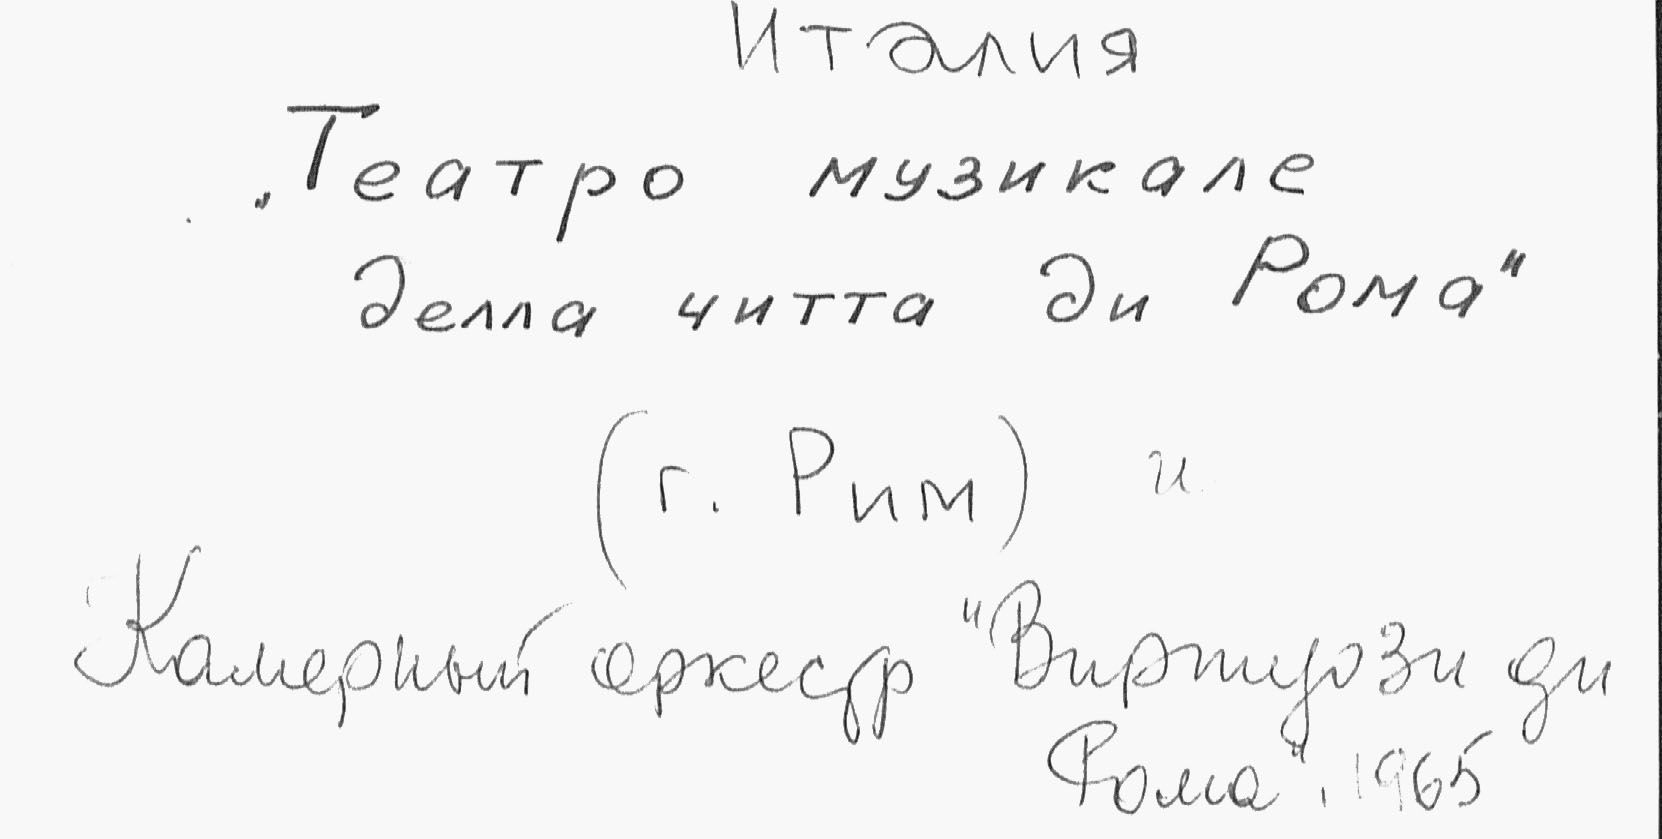 Италия
„Театро музикале
делла читта ди Рома"
(г. Рим) и
Камерный оркестр "Виртуози ди
Рома". 1965